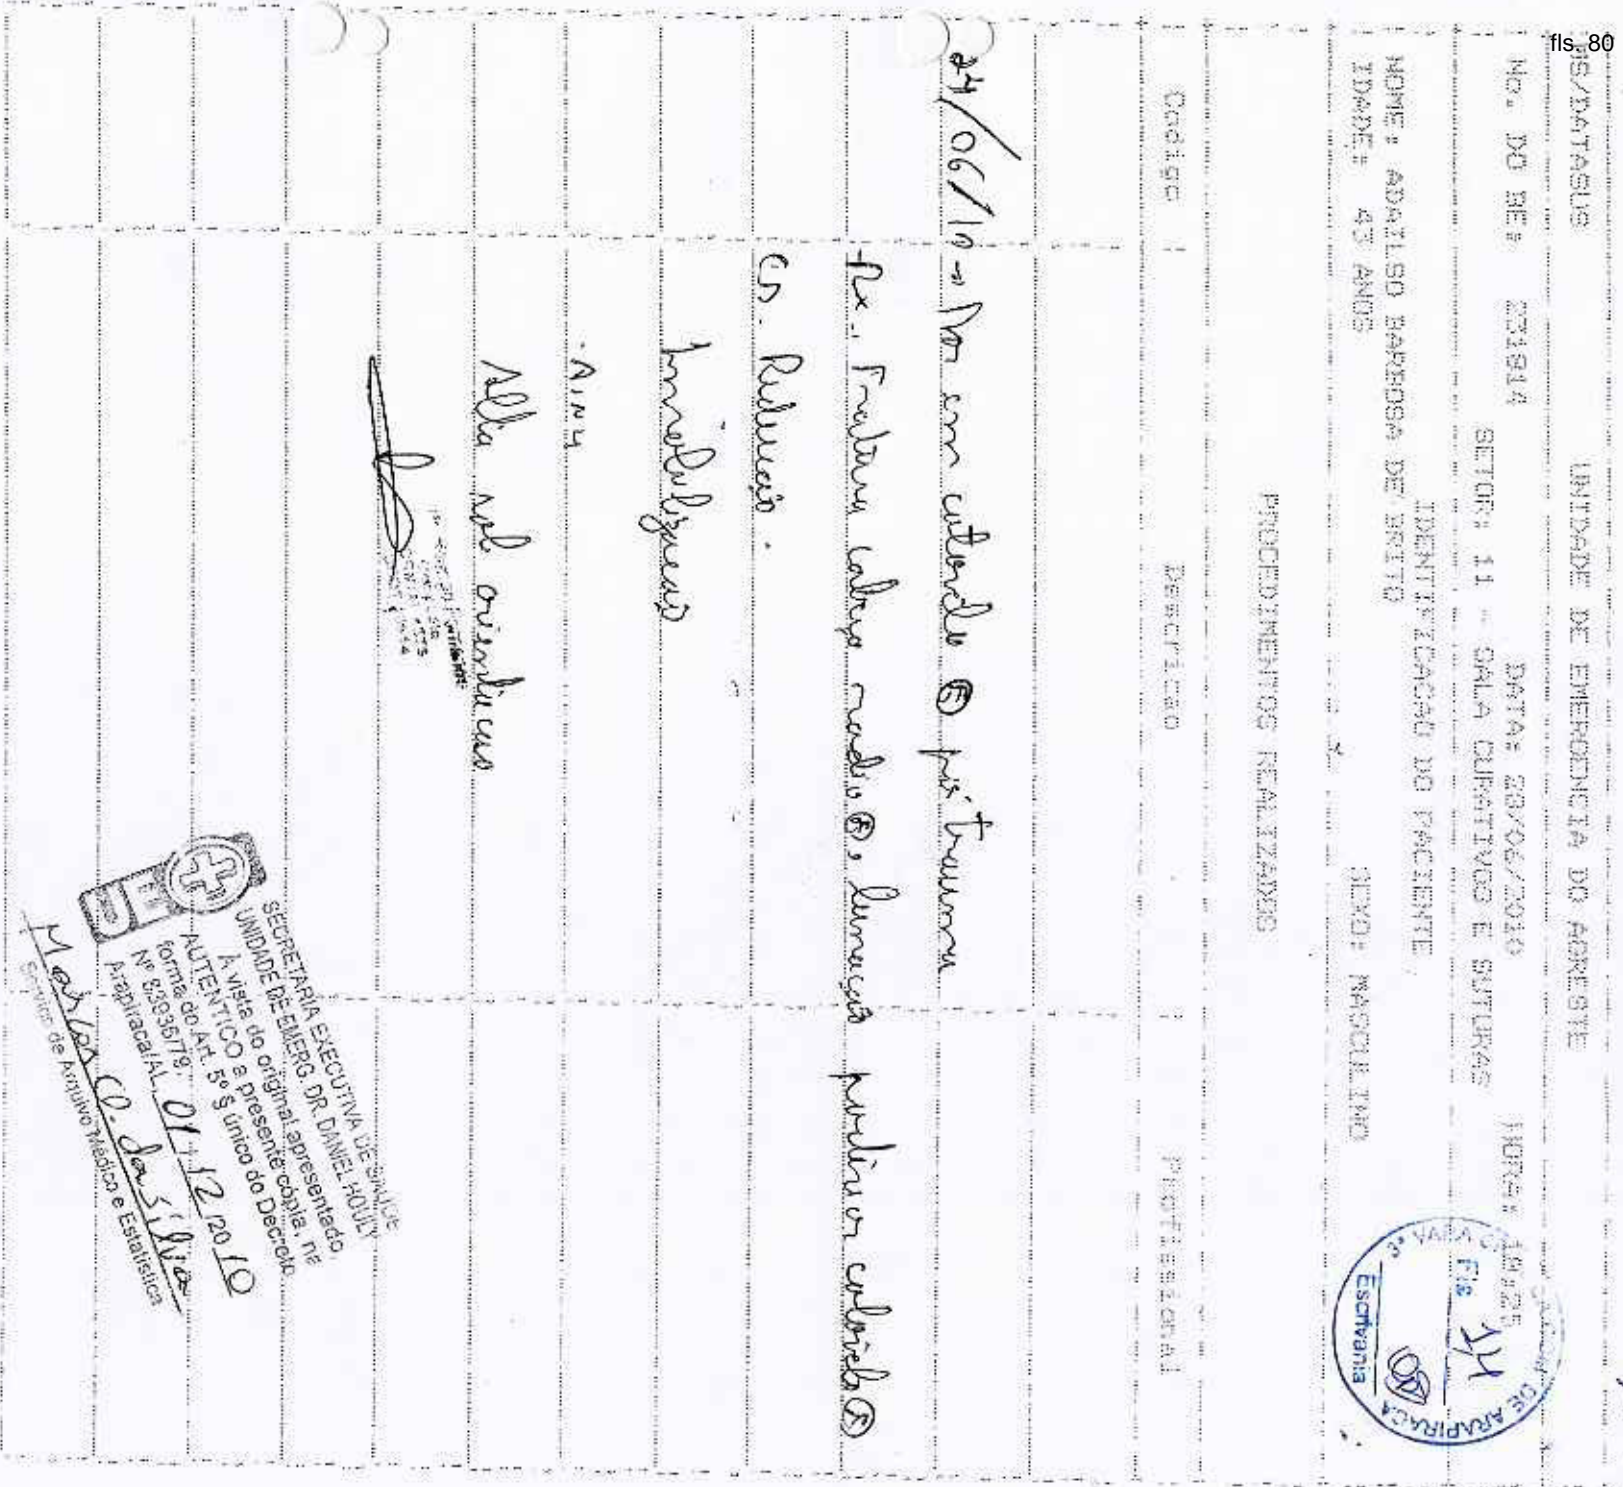 fls. 80
MS/DATASUS UNIDADE DE EMERGENCIA DO AGRESTE
No. DO BE: 231814 DATA: 23/06/2010 HORA: 19:25
SETOR: 11 - SALA CURATIVOS E SUTURAS
IDENTIFICACAO DO PACIENTE
NOME: ADAILSO BARBOSA DE BRITO
IDADE: 43 ANOS SEXO: MASCULINO
3ª VARA DE ARAPIRACA
Fls 14
Escrivania
PROCEDIMENTOS REALIZADOS
Codigo Descricao Profissional
24/06/10 → Dor em cotovelo (E) pós trauma
Rx. Fratura cabeça rádio (E), luxação posterior cotovelo (E)
CD. Redução.
Imobilização
AINH
Alta sob orientação
SECRETARIA EXECUTIVA DE SAUDE
UNIDADE DE EMERG. DR. DANIEL HOULY
À vista do original apresentado,
AUTENTICO a presente cópia, na
forma do Art. 5º § único do Decreto
Nº 83936/79.
Arapiraca/AL, 01/12/2010
Marlos C. da Silva
Serviço de Arquivo Médico e Estatística